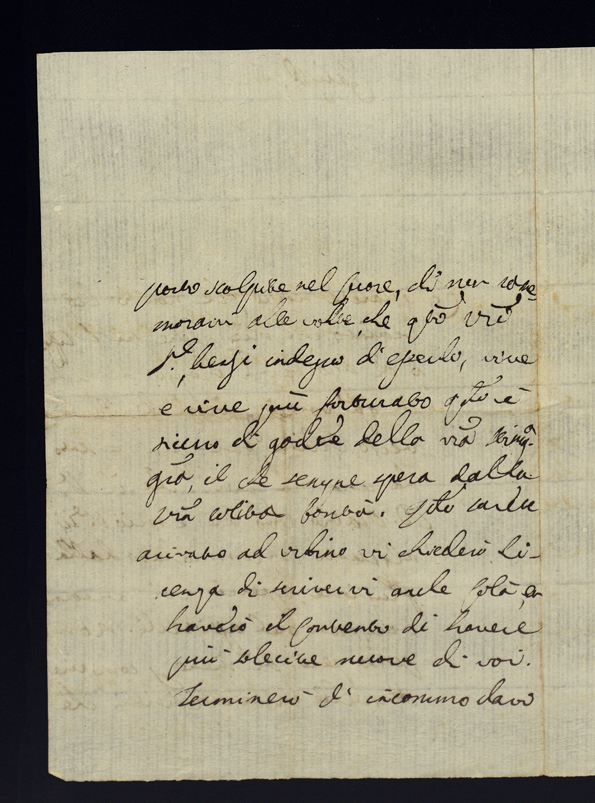 porto scolpite nel fuore, di non
morarvi alle volte, che qto vro
Sre, benchi indegno d'eperlo, vive
e vive più fortunato qto è
sicuro di godere della vra
gra, il che sempre spera dalla
vra solita bontà. Qto sarete
arrivato ad Urbino vi chiederò li-
cenza di scrivervi anche costà, e
haverò il contento di havere
più felice nuove di voi.
Terminerò d'incommodarvi